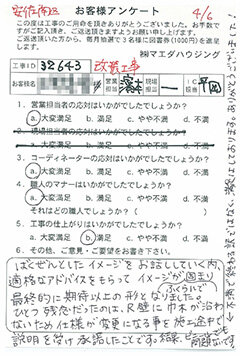 安佐南区
お客様アンケート
4/6
この度は工事のご用命を頂きありがとうございました。お手数ですがご記入頂き、ご返送頂きますようお願い申し上げます。
ご返送頂いた方から、毎月抽選で3名様に図書券(1000円)を進呈します。
㈱マエダハウジング
工事ID 32643 改装工事
お客様名
営業担当
現場担当 ー
IC担当 平岡
1. 営業担当者の応対はいかがでしたでしょうか?
a.大変満足 b.満足 c.やや不満 d.不満
2. 現場担当者の応対はいかがでしたでしょうか?
a.大変満足 b.満足 c.やや不満 d.不満
3. コーディネーターの応対はいかがでしたでしょうか?
a.大変満足 b.満足 c.やや不満 d.不満
4. 職人のマナーはいかがでしたでしょうか?
a.大変満足 b.満足 c.やや不満 d.不満
それはどの職人でしょうか?( )
5. 工事の仕上がりはいかがでしたでしょうか?
a.大変満足 b.満足 c.やや不満 d.不満
6. その他、ご意見・ご要望をお書き下さい。
ばくぜんとしたイメージをお話ししていく内、
適格なアドバイスをもらってイメージが固まり
ふくらいで
最終的に期待以上の形となりました。
ひとつ残念だったのは、R壁に巾木が沿わ
ないため仕様が変更になる事を施工途中で
説明を受け承諾したことです。結果
問題ないです。
←不満で終わる訳ではなく、満足しております。ありがとうございました!